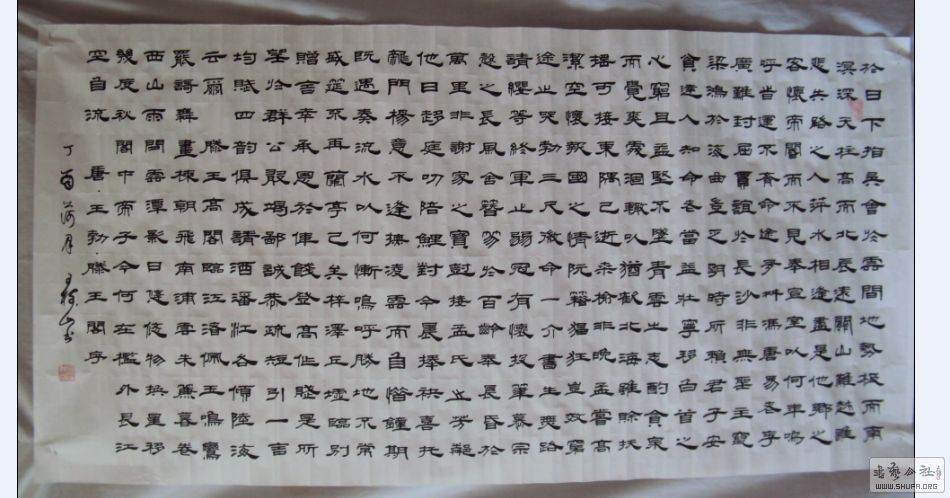 於日下指吳會於雲間地勢極而南
溟深天柱高而北辰遠關山難越誰
悲失路之人萍水相逢盡是他鄉之
客懷帝閽而不見奉宣室以何年嗚
呼時運不齊命途多舛馮唐易老李
廣難封屈賈誼於長沙非無聖主竄
梁鴻於海曲豈乏明時所賴君子安
貧達人知命老當益壯寧移白首之
心窮且益堅不墜青雲之志酌貪泉
而覺爽處涸轍以猶歡北海雖賒扶
搖可接東隅已逝桑榆非晚孟嘗高
潔空懷報國之情阮籍猖狂豈效窮
途之哭勃三尺微命一介書生無路
請纓等終軍之弱冠有懷投筆慕宗
愨之長風舍簪笏於百齡奉晨昏於
萬里非謝家之寶樹接孟氏之芳鄰
他日趨庭叨陪鯉對今晨捧袂喜托
龍門楊意不逢撫凌雲而自惜鍾期
既遇奏流水以何慚嗚呼勝地不常
盛筵不再蘭亭已矣梓澤丘墟臨別
贈言幸承恩於偉餞登高作賦是所
望於群公敢竭鄙誠恭疏短引一言
均賦四韻俱成請灑潘江各傾陸海
云爾 滕王高閣臨江渚佩玉鳴鸞
罷歌舞畫棟朝飛南浦雲朱簾暮卷
西山雨閑雲潭影日悠悠物換星移
幾度秋閣中帝子今何在檻外長江
空自流 唐·王勃·滕王閣序
丁酉荷月
WWW.SHUFA.ORG